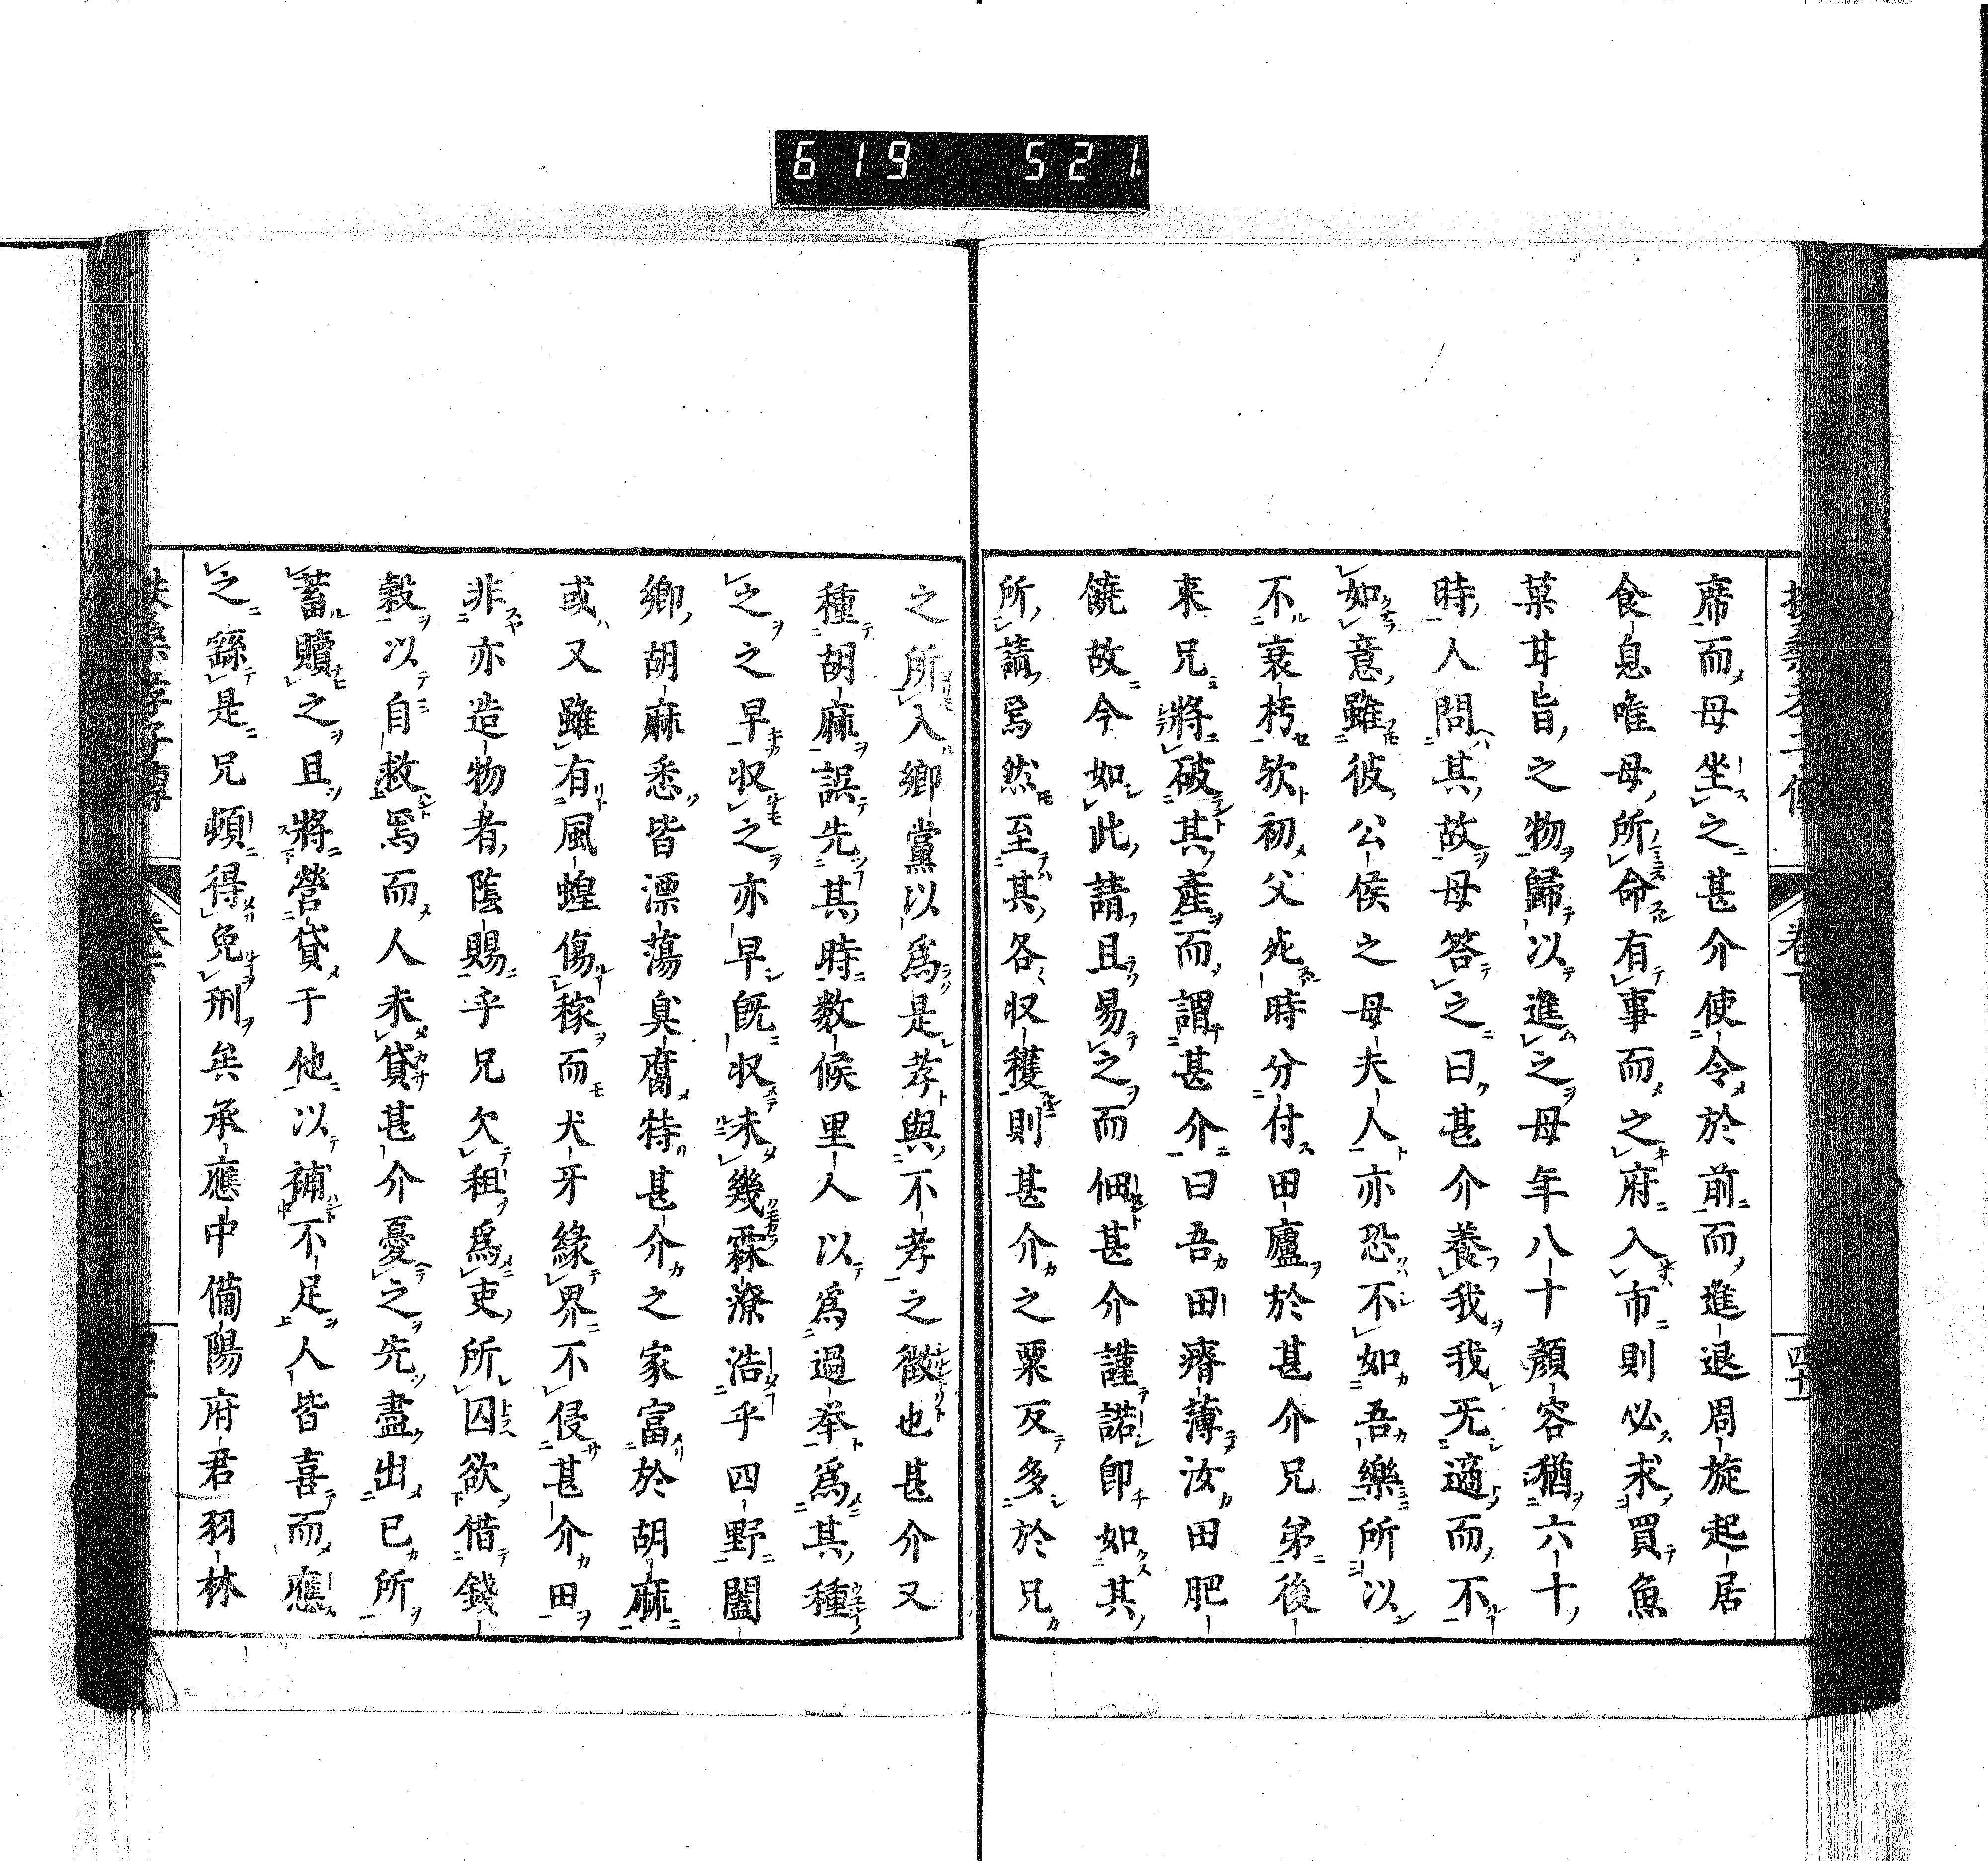 619 521
席而母坐之甚介使令於前而進退周旋起居
食息唯母所命有事而之府入市則必求買魚
菓甘旨之物歸以進之母年八十顏容猶六十
時人問其故母答之曰甚介養我我无適而不
如意雖彼公侯之母夫人亦恐不如吾樂所以
不衰朽欤初父死時分付田廬於甚介兄弟後
來兄將破其產而謂甚介曰吾田瘠薄汝田肥
饒故今如此請且易之而佃甚介謹諾即如其
所請焉然至其各収穫則甚介之粟反多於兄
之所入鄉黨以爲是孝與不孝之徵也甚介又
種胡麻誤先其時數候里人以爲過举爲其種
之之早収之亦早既収未幾霖潦浩乎四野闔
鄉胡麻悉皆漂蕩臭腐特甚介之家富於胡麻
或又雖有風蝗傷稼而犬牙緣界不侵甚介田
非亦造物者蔭賜乎兄欠租爲吏所囚欲借錢
穀以自救焉而人未貸甚介憂之先盡出已所
蓄贖之且將營貸于他以補不足人皆喜而應
之繇是兄頓得免刑矣承應中備陽府君羽林
扶桑孝子傳